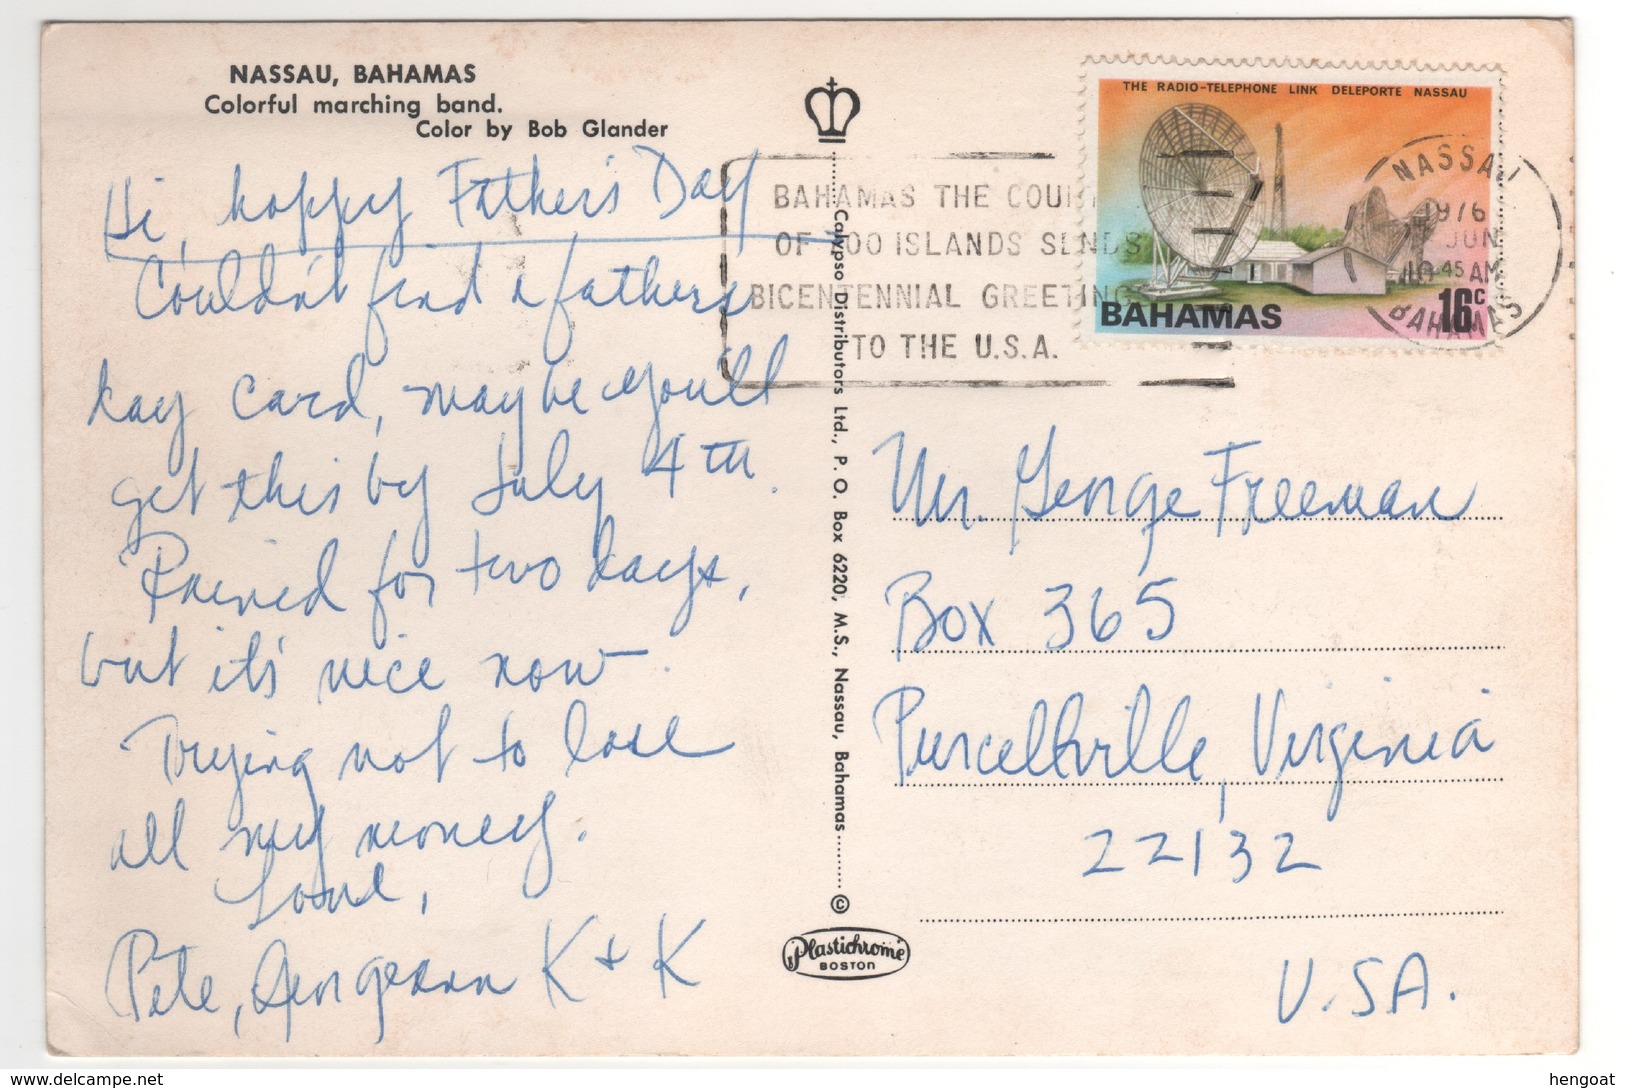 NASSAU, BAHAMAS
Colorful marching band.
Color by Bob Glander
Hi, happy Father's Day
Couldn't find a fathers
day card, maybe you'll
get this by July 4th.
Rained for two days,
but it's nice now.
Trying not to lose
all my money.
Love,
Pete, Georgeann K + K
Calypso Distributors Ltd., P. O. Box 6220, M.S., Nassau, Bahamas ©
Plastichrome
BOSTON
THE RADIO-TELEPHONE LINK DELEPORTE NASSAU
BAHAMAS
16c
BAHAMAS THE COU
OF 700 ISLANDS SENDS
BICENTENNIAL GREETING
TO THE U.S.A.
NASSAU
1976
JUN
10 45 AM
BAHAMAS
Mr. George Freeman
Box 365
Purcellville, Virginia
22132
U.S.A.
hengoat